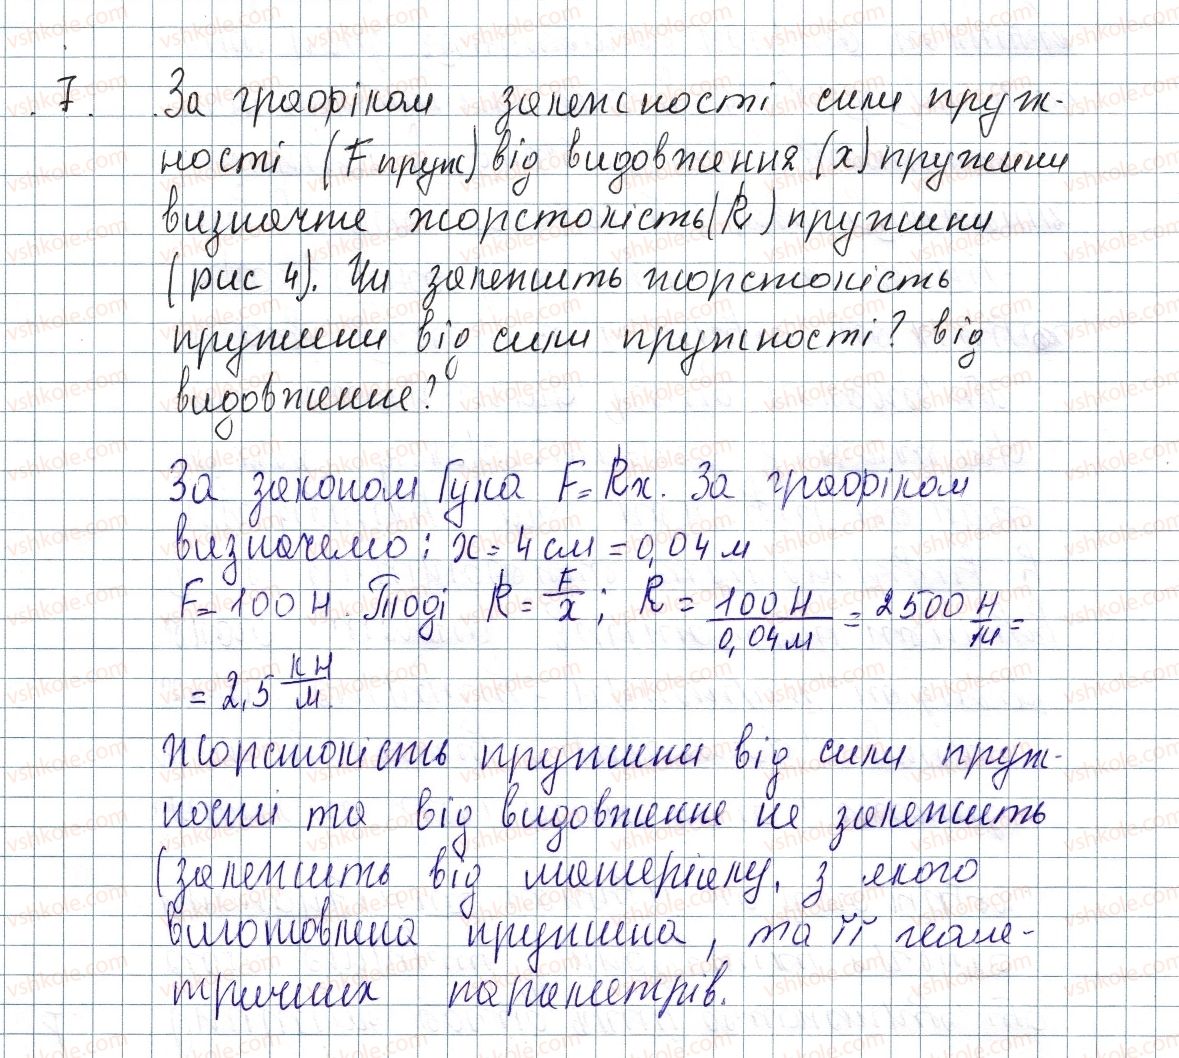 7. За графіком залежності сили пруж-
ності (Fпруж) від видовження (x) пружини
визначте жорсткість (k) пружини
(рис 4). Чи залежить жорсткість
пружини від сили пружності? від
видовження?
За законом Гука F=kx. За графіком
визначемо: x=4 см = 0,04 м
F=100 Н. Тоді k = F/x; k = 100 Н/0,04 м = 2500 Н/м =
= 2,5 кН/м.
Жорсткість пружини від сили пруж-
ності та від видовження не залежить
(залежить від матеріалу, з якого
виготовлена пружина, та її геоме-
тричних параметрів.